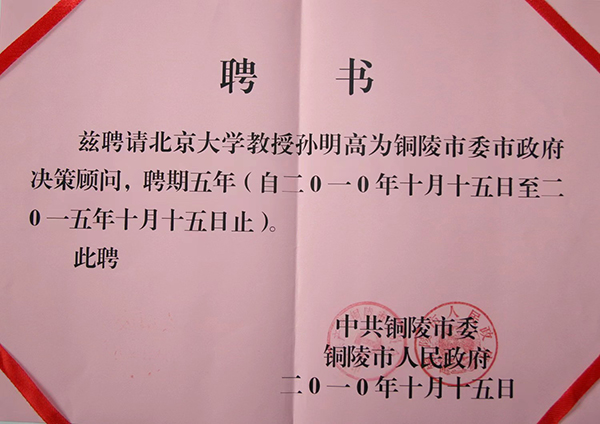 聘 书
兹聘请北京大学教授孙明高为铜陵市委市政府
决策顾问，聘期五年（自二0一0年十月十五日至二
0一五年十月十五日止）。
此聘
中共铜陵市委
铜陵市人民政府
二0一0年十月十五日